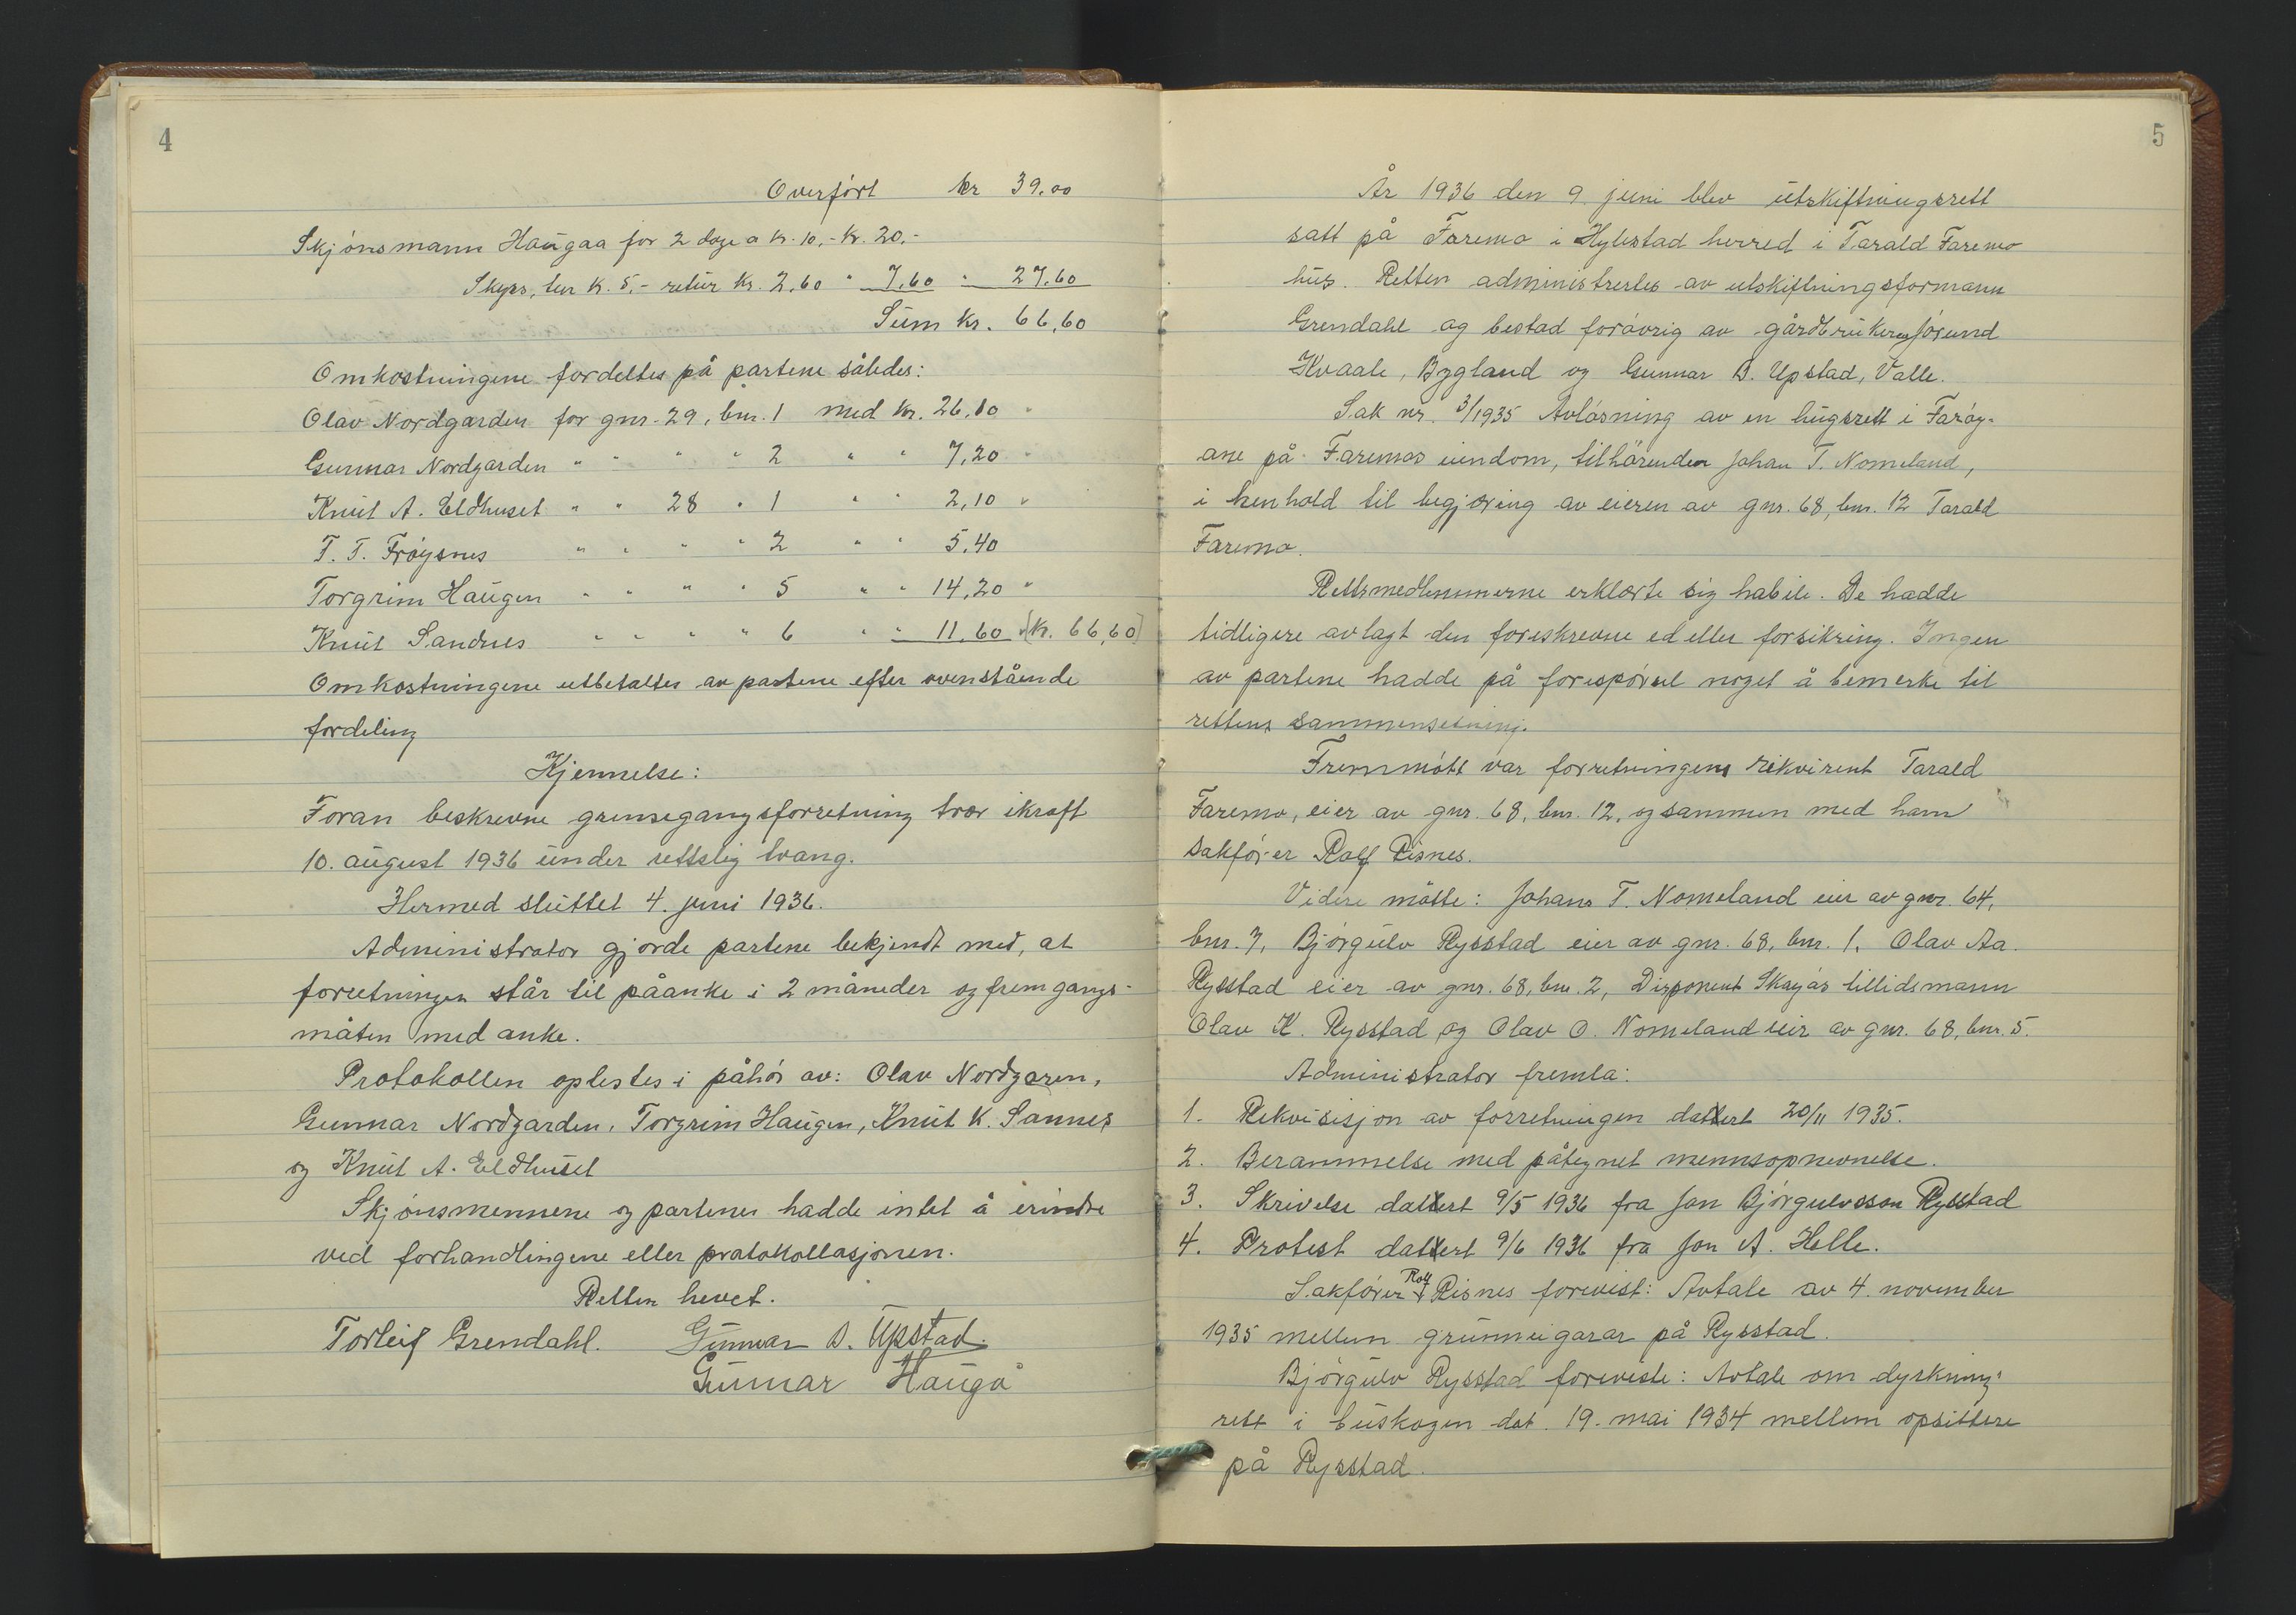 4
Overført kr 39.00
Skjønsmann Haugaa for 2 dage a kr. 10,- kr. 20.-
Skyss, tur k. 5,- retur kr. 2,60 " 7,60 " 27.60
Sum kr. 66,60
Omkostningene fordeltes på partene således:
Olav Nordgarden for gnr. 29, bnr. 1 med kr. 26,10 "
Gunnar Nordgarden " " " " 2 " " 7,20 "
Knut A. Eldhuset " " 28 " 1 " " 2,10 "
T. T. Frøysnes " " " " 2 " " 5,40
Torgrim Haugen " " " " 5 " " 14,20 "
Knut Sandnes " " " " 6 " " 11,60 " (kr. 66,60)
Omkostningene utbetaltes av partene efter ovenstående
fordeling
Kjennelse:
Foran beskrevne grensegangsforretning trær ikraft
10. august 1936 under rettslig tvang.
Hermed sluttet 4. juni 1936.
Administrator gjorde partene bekjendt med, at
forretningen står til påanke i 2 måneder og fremgangs-
måten med anke.
Protokollen oplestes i påhør av: Olav Nordgaren,
Gunnar Nordgarden, Torgrim Haugen, Knut K. Sannes
og Knut A. Eldhuset
Skjønsmennene og partenes hadde intet å erindre
ved forhandlingene eller protokollasjonen.
Retten hevet.
Torleif Grendahl. Gunnar D. Upstad.
Gunnar Haugå
5
År 1936 den 9. juni blev utskiftningsrett
satt på Faremo i Hylestad herred i Tarald Faremo
hus. Retten administrertes av utskiftningsformann
Grendahl og bestod forøvrig av gårdbrukerne Jørund
Kvaale, Bygland og Gunnar D. Upstad, Valle.
Sak nr. 3/1935 Avløsning av en hugsrett i Farøy-
ane på Faremos eiendom, tilhørenden Johan T. Nomeland,
i henhold til begjæring av eieren av gnr. 68, bnr. 12 Tarald
Faremo.
Rettsmedlemmerne erklærte sig habile. De hadde
tidligere avlagt den foreskrevne ed eller forsikring. Ingen
av partene hadde på forespørsel noget å bemerke til
rettens sammensetning.
Fremmøtt var forretningens rekvirent Tarald
Faremo, eier av gnr. 68, bnr. 12, og sammen med ham
sakfører Rolf Risnes.
Videre møtte: Johans T. Nomeland eier av gnr. 64,
bnr. 7, Bjørgulv Rysstad eier av gnr. 68, bnr. 1, Olav Aa.
Rysstad eier av gnr. 68, bnr. 2, Disponent Skayås tillidsmann
Olav K. Rysstad og Olav O. Nomeland eier av gnr. 68, bnr. 5.
Administrator fremla:
1. Rekvisisjon av forretningen datert 20/11 1935.
2. Berammelse med påtegnet mennsopnevnelse.
3. Skrivelse datert 9/5 1936 fra Jon Bjørgulvsson Rysstad
4. Protest datert 9/6 1936 fra Jon A. Helle.
Sakfører Rolf Risnes forevist: Avtale av 4. november
1935 mellem grunneigarar på Rysstad.
Bjørgulv Rysstad foreviste: Avtale om dyrkning-
rett i buskogen dat. 19. mai 1934 mellem opsittere
på Rysstad.